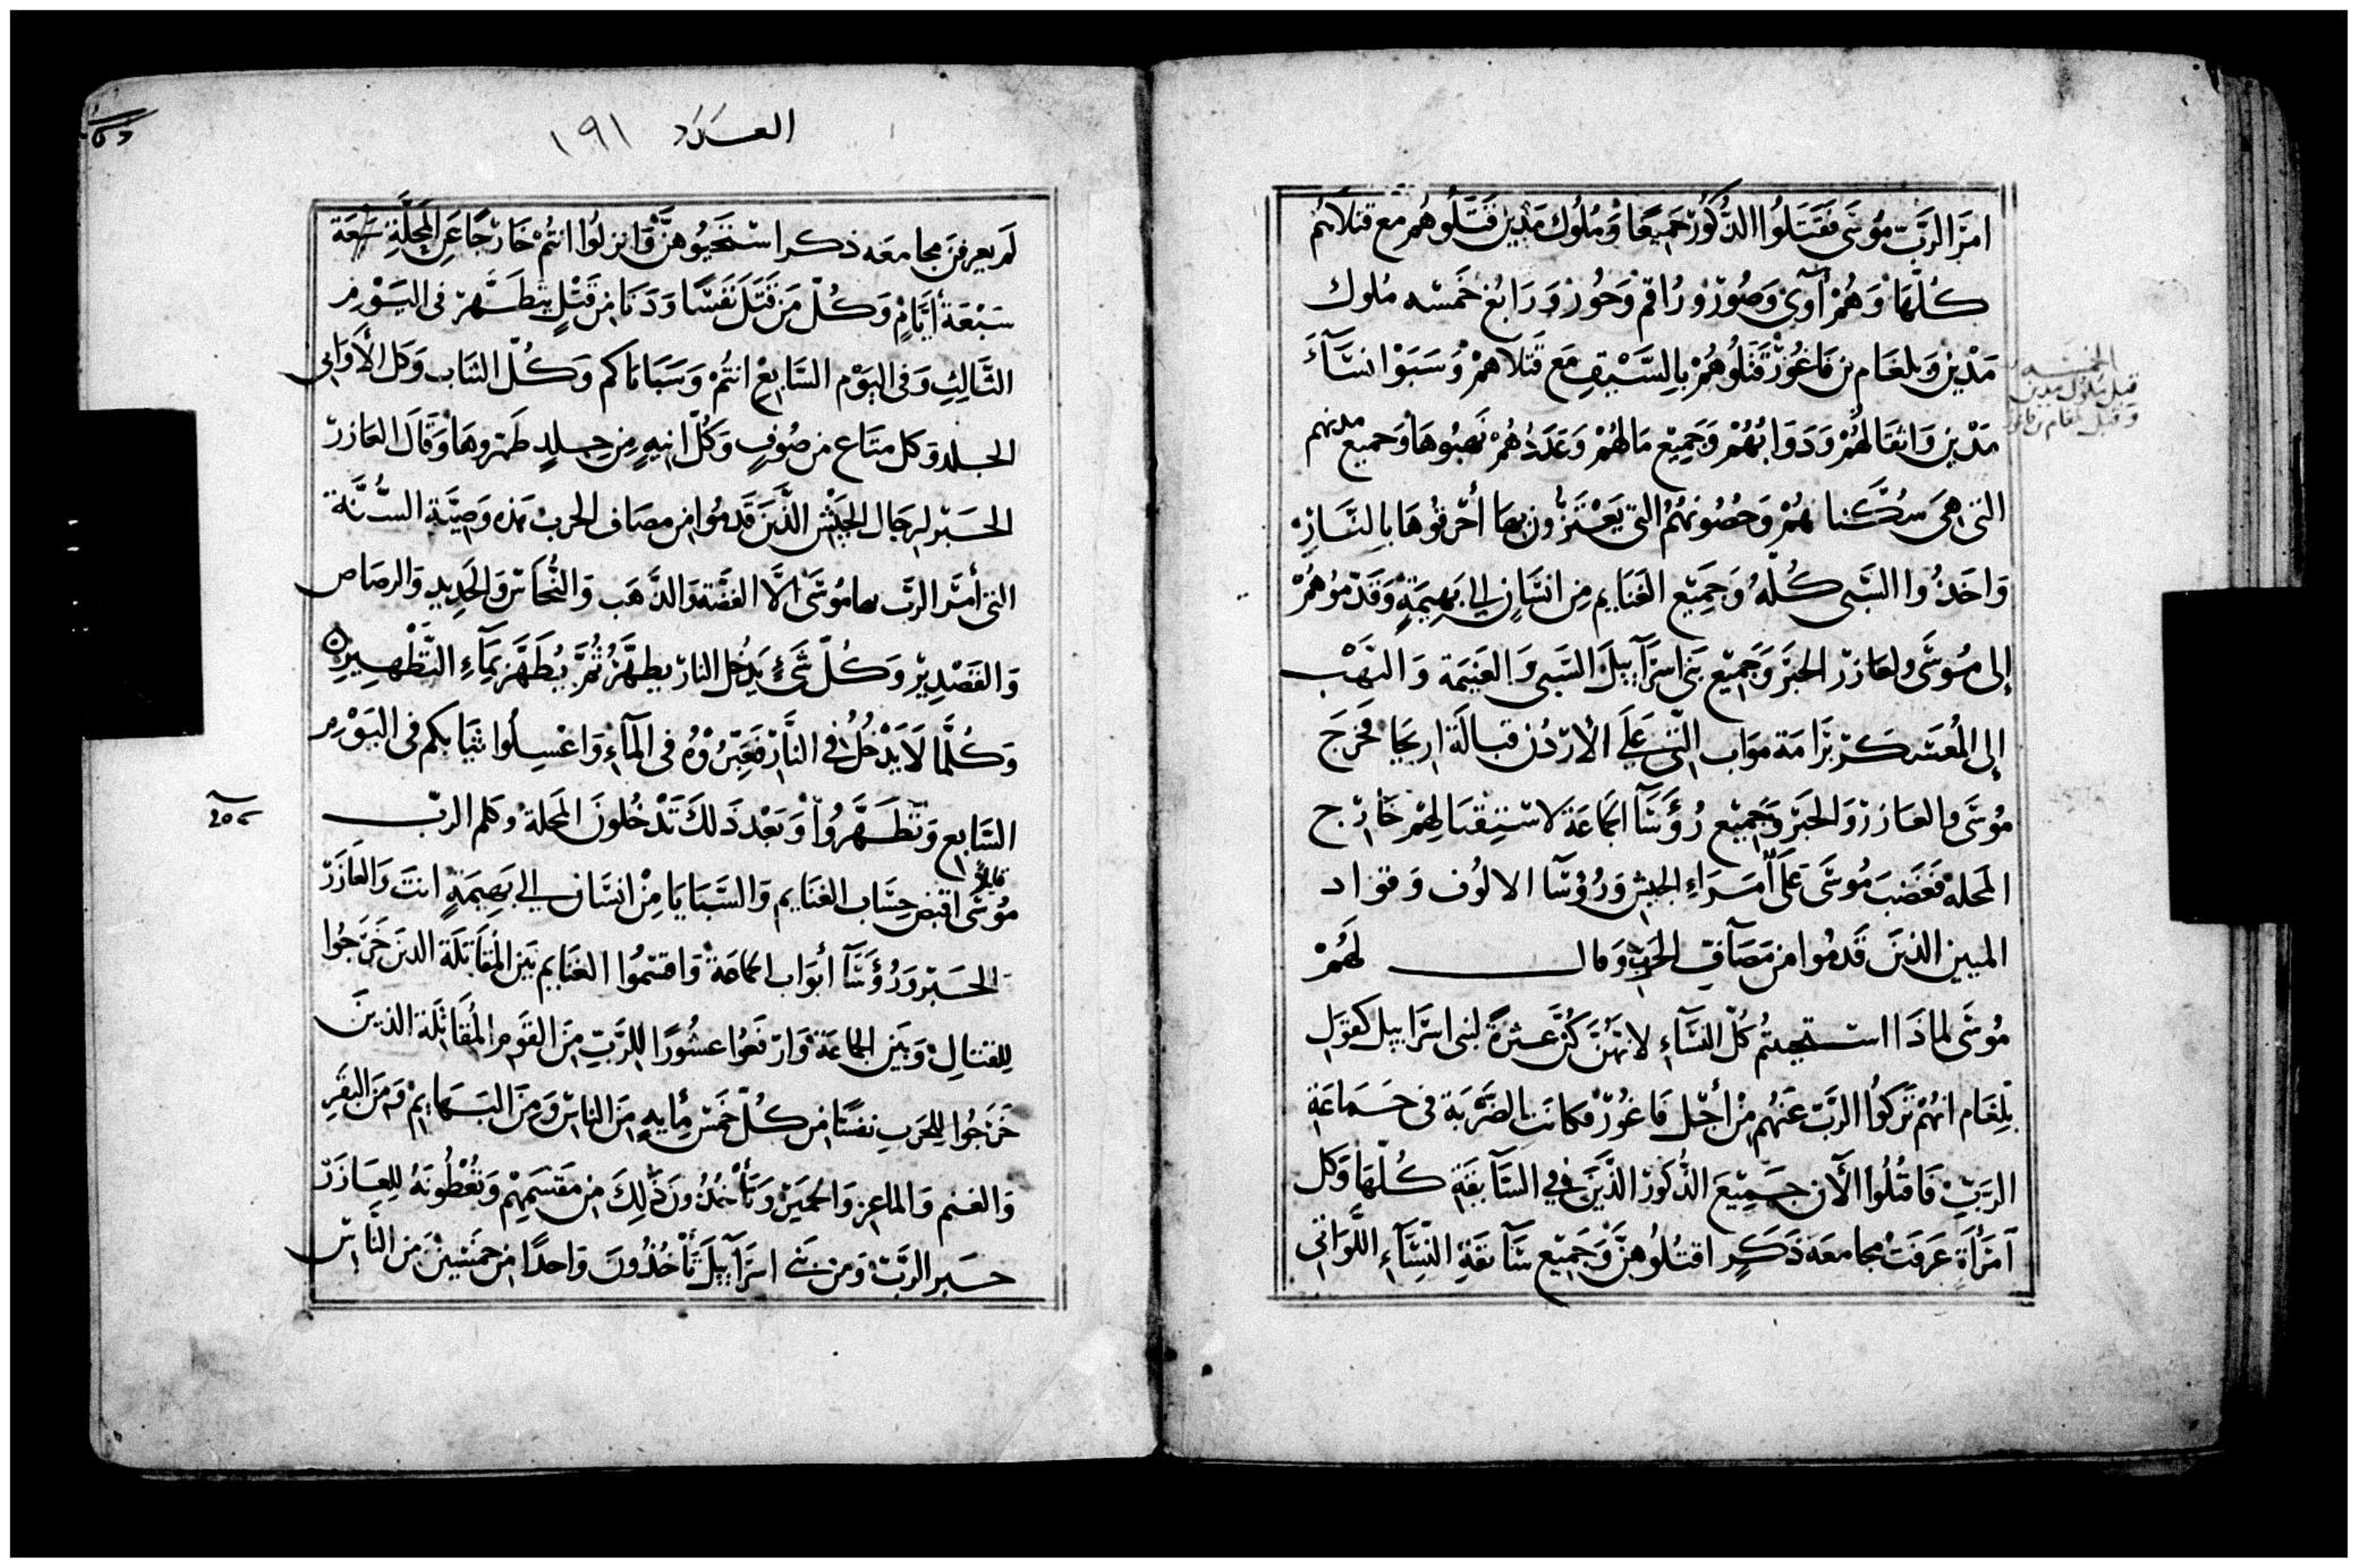 امر الرب موسى فقتلوا الذكور جميعا وملوك مدين قتلوهم مع قتلاهم
كلها وهم آوي وصور وراقم وحور ورابع خمسه ملوك
مدين وبلعام بن فاغور قتلوهم بالسيف مع قتلاهم وسبوا نساء
مدين واثقالهم ودوابهم وجميع مالهم وعددهم نهبوها وجميع مدنهم
التي هي سكناهم وحصونهم التي يعتزون بها أحرقوها بالنار
واخذوا السبي كله وجميع الغنايم من انسان الي بهيمة وقدموهم
إلى موسى والعازر الحبر وجميع بني اسراييل السبي والغنيمة والنهب
إلى المعسكر برامة مواب التي على الأردن قبالة اريحا فخرج
موسى والعازر والحبر وجميع رؤسا الجماعة لاستقبالهم خارج
المحلة فغضب موسى على أمراء الجيش ورؤسا الالوف وقواد
الميين الذين قدموا من مصاف الحرب وقال لهم
موسى لماذا استحييتم كل النساء لانهن كن عثرة لبني اسراييل كقول
بلعام انهم تركوا الرب عنهم من أجل فاغور فكانت الضربة في جماعة
الرب فاقتلوا الآن جميع الذكور الذين في السابقة كلها وكل
امرأة عرفت مجامعه ذكر اقتلوهن وجميع سابقة النساء اللواتي
الخمسه
قتل ملوك مدين
وقتل بلعام بن فاغور
العدد ١٩١
لم يعرفن مجامعه ذكر استحيوهن وانزلوا انتم خارجا عن المحلة
سبعة أيام وكل من قتل نفسا ودنا من قتل يتطهر في اليوم
الثالث وفي اليوم السابع انتم وسباياكم وكل الثياب وكل الأواني
الجلد وكل متاع من صوف وكل انيه من جلد طهروها وقال العازر
الحبر لرجال الجيش الذين قدموا من مصاف الحرب هذه وصية السنة
التي أمر الرب بها موسى الا الفضة والذهب والنحاس والحديد والرصاص
والقصدير وكل شئ يدخل النار يطهر ثم يطهر بماء التطهير
وكلما لا يدخل في النار فعبروه في الماء واغسلوا ثيابكم في اليوم
السابع وتطهروا وبعد ذلك تدخلون المحلة وكلم الرب
موسى قايلا اقبض حساب الغنايم والسبايا من انسان الي بهيمة انت والعازر
الحبر ورؤسا أبواب الجماعة واقتسموا الغنايم بين المقاتلة الذين خرجوا
للقتال وبين الجماعة وارفعوا عشورا للرب من القوم المقاتلة الذين
خرجوا للحرب نفسا من كل خمس مايه من الناس ومن البهايم ومن البقر
والغنم والماعز والحمير وتأخذون ذلك من مقسمهم وتعطونه للعازر
حبر الرب ومن بني اسراييل تأخذون واحدا من خمسين من الناس